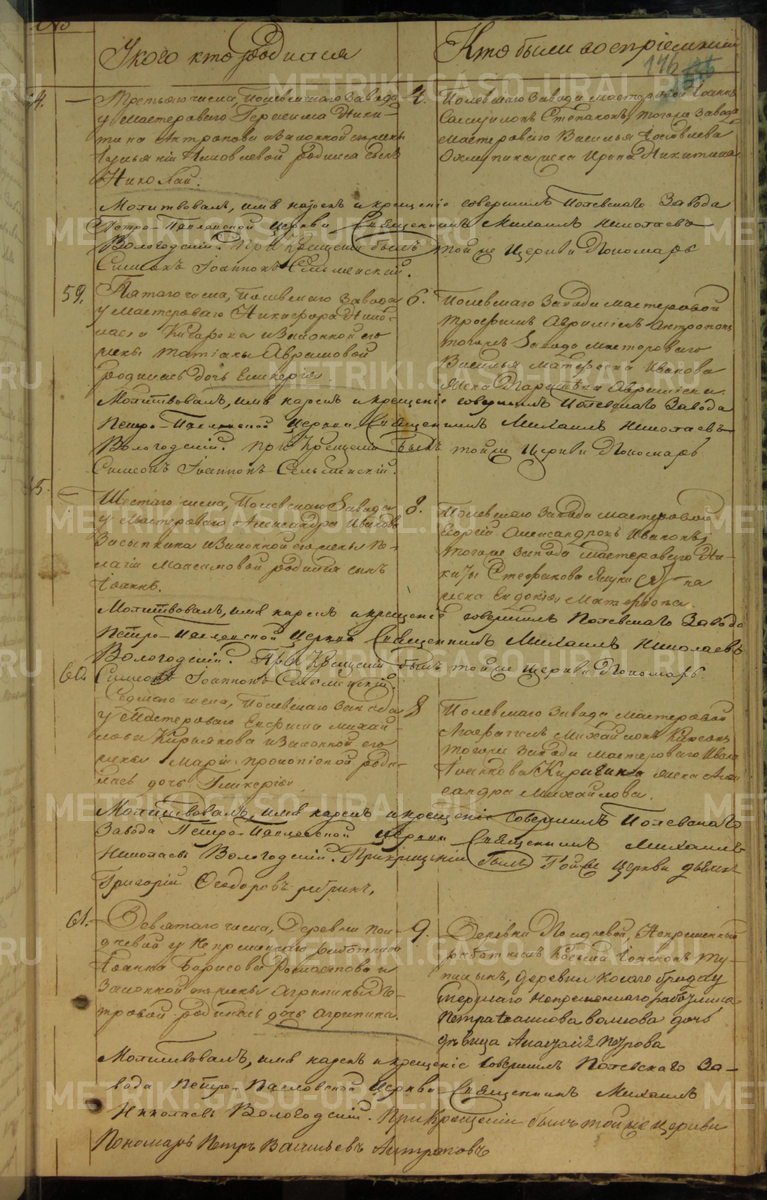 У кого кто родился
Кто были восприемники
176
4.
Третьяго числа, Полевскаго Завода
у Мастероваго Герасима Ники-
тина Антропова и Законной его жены
родился сынъ
Николай.
4.
Полевскаго Завода мастеровой Іоаннъ
Самуиловъ Степановъ, тогожъ Завода
мастероваго Василья Яковлева
жена Ирина Никитина
Молитвовалъ, имя нарекъ и крещеніе совершилъ Полевскаго Завода
Петро-Павловской Церкви Священникъ Михаилъ Николаевъ
Вологодскій. При Крещеніи былъ той же Церкви Пономарь
Симеонъ Іоанновъ Сельменскій.
59.
Пятаго числа, Полевскаго Завода
у Мастероваго Никифора Нико-
лаева и Законной его
жены Татьяны Аврамовой
родилась дочь Гликерія
6.
Полевскаго Завода мастеровой
Трофимъ Аврамовъ Антроповъ
тогожъ Завода Мастероваго
Василья Иванова
жена
Молитвовалъ, имя нарекъ и крещеніе совершилъ Полевскаго Завода
Петро-Павловской Церкви Священникъ Михаилъ Николаевъ
Вологодскій. При Крещеніи былъ той же Церкви Пономарь
Симеонъ Іоанновъ Сельменскій.
5.
Шестаго числа, Полевскаго Завода
у Мастероваго Александра Иванова
Засыпкина и Законной его жены Пе-
лагіи Максимовой родился сынъ
Іоаннъ.
8.
Полевскаго Завода мастеровой
Георгій Александровъ Ивановъ,
тогоже завода мастероваго Ни-
киты Стефанова
жена Евдокія
Молитвовалъ, имя нарекъ и крещеніе совершилъ Полевскаго Завода
Петро-Павловской Церкви Священникъ Михаилъ Николаевъ
Вологодскій. При Крещеніи былъ той же Церкви Пономарь
Симеонъ Іоанновъ Сельменскій.
60.
Седьмаго числа, Полевскаго Завода
у Мастероваго Ефима Михай-
лова Кирьякова и Законной его
жены Маріи Прокопіевой роди-
лась дочь Гликерія.
8
Полевскаго Завода Мастеровой
Михайловъ
тогоже завода мастероваго Ивана
Іоаннова Киригина жена Алек-
сандра Михайлова.
Молитвовалъ, имя нарекъ и крещеніе совершилъ Полевскаго
Завода Петро-Павловской Церкви Священникъ Михаилъ
Николаевъ Вологодскій. При крещеніи былъ той же Церкви дьячекъ
Григорій Феодоровъ
61.
Девятаго числа, Деревни Пол-
дневой у Непременнаго работника
Іоанна Борисова и
Законной его жены Агрипины Пе-
тровой родилась дочь Агрипина.
9.
Деревни Полдневой, Непременный
работникъ Козьма Іоанновъ Ту-
пицынъ, деревни Косаго броду
непременнаго работника
Петра Іоаннова Волкова дочь
дѣвица Петрова
Молитвовалъ, имя нарекъ и крещеніе совершилъ Полевскаго За-
вода Петро-Павловской Церкви Священникъ Михаилъ
Николаевъ Вологодскій. При Крещеніи былъ той же Церкви
Пономарь Петръ Васильевъ Антроповъ
METRIKI.GASO-URAL.RU